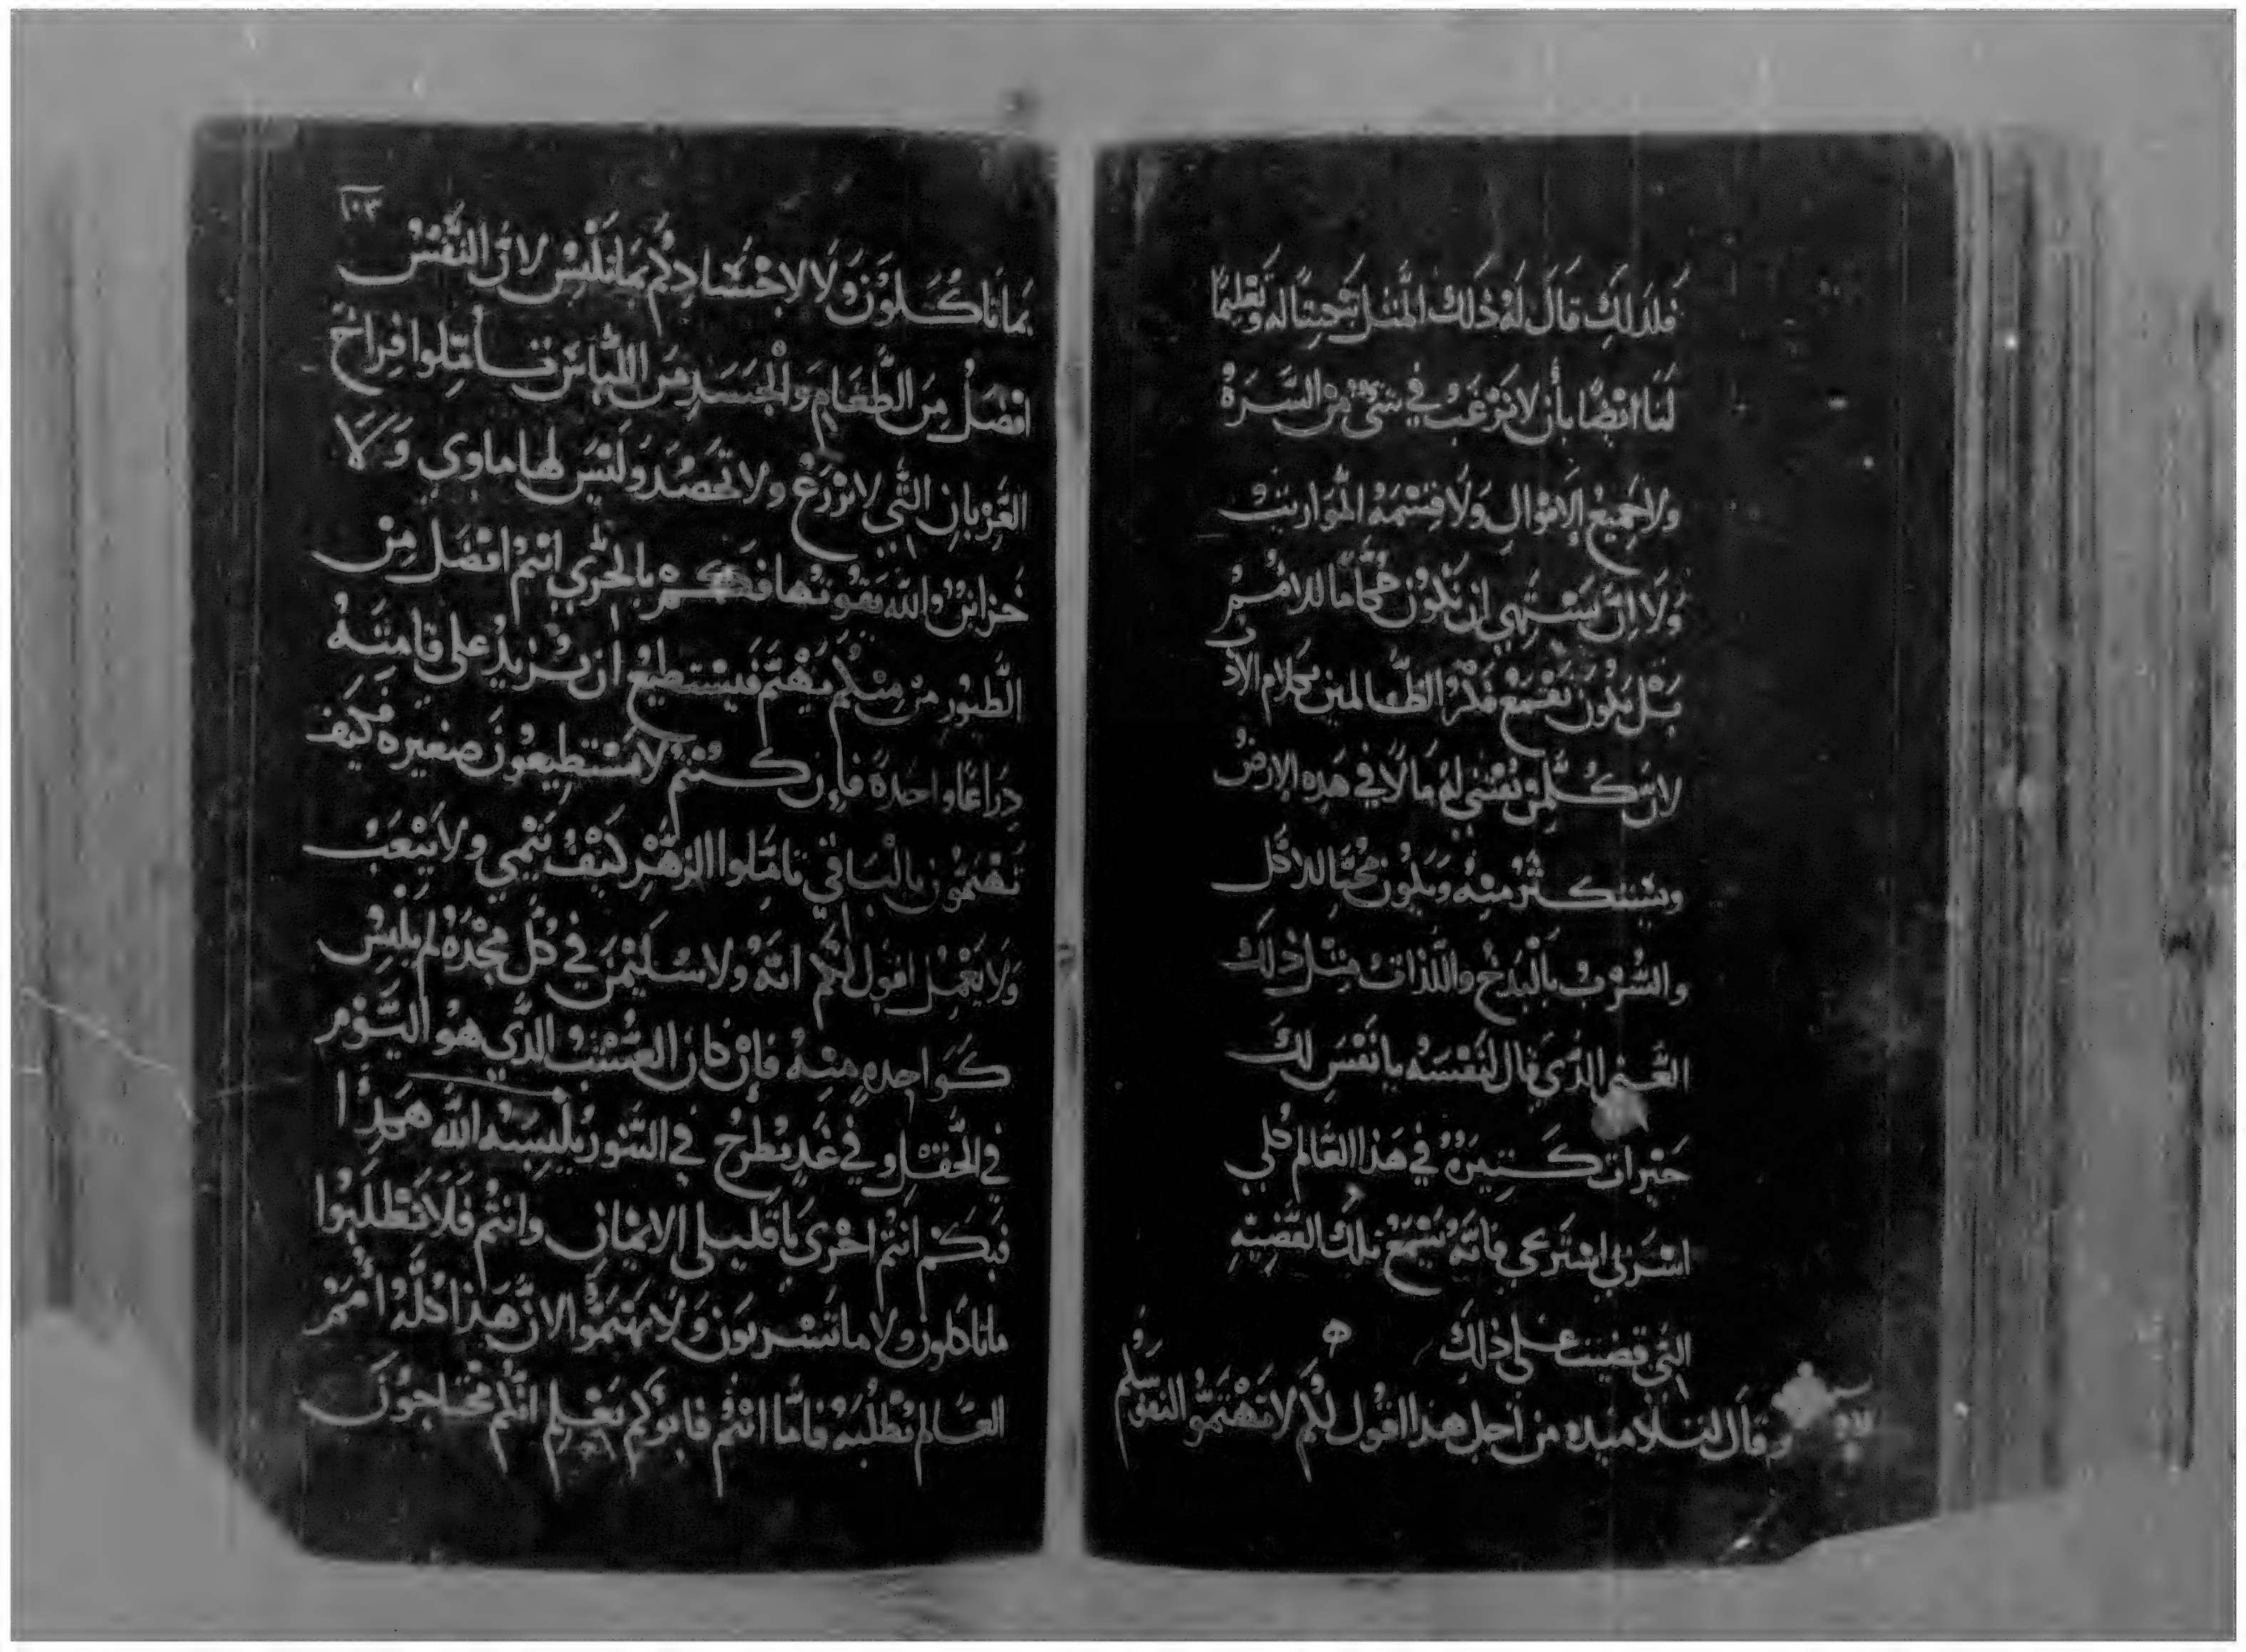 فلذلك قال له ذلك المثل تبحيتا له وتعليما
لنا ايضا بأن لا نرغب في شي من السره
ولا جميع الاموال ولا قسمه المواريث
ولا ان نشتهي ان نكون حكاما للامم
بل يكون نقمع فكر الظالمين بكلام الاد
لان كلمن يقتني له مالا في هذه الارض
ويستكثر منه ويكون محبا للاكل
والشرب بالبدخ واللذات مثل ذلك
الغني الذي قال لنفسه يا نفس لك
خيرات كثيره في هذا العالم كلي
اشربي استريحي فانه يسمع تلك القضيه
التي قضيت على ذلك
وقال لتلاميذه من اجل هذا اقول لكم لا تهتموا لنفوسكم
١٠٣
بما تاكلون ولا لاجسادكم بما تلبس لان النفس
افضل من الطعام والجسد من اللباس تاملوا فراخ
الغربان التي لا تزرع ولا تحصد وليس لها ماوي ولا
خزاين والله يقوتها فكم بالحري انتم افضل من
الطيور من منكم يهتم فيستطيع ان يزيد على قامته
دراعا واحده فإن كنتم لا تستطيعون صغيره فكيف
تهتمون بالباقي تاملوا الزهر كيف ينمي ولا يتعب
ولا يعمل اقول لكم انه ولا سليمن في كل مجده لم يلبس
كواحده منه فإن كان العشب الذي هو اليوم
في الحقل وفي غد يطرح في التنور يلبسه الله هكذا
فبكم انتم احرى يا قليلى الايمان وانتم فلا تطلبوا
ما تاكلون ولا ما تشربون ولا تهتموا لان هذا كله امم
العالم تطلبه فاما انتم فابوكم يعلم انكم محتاجون